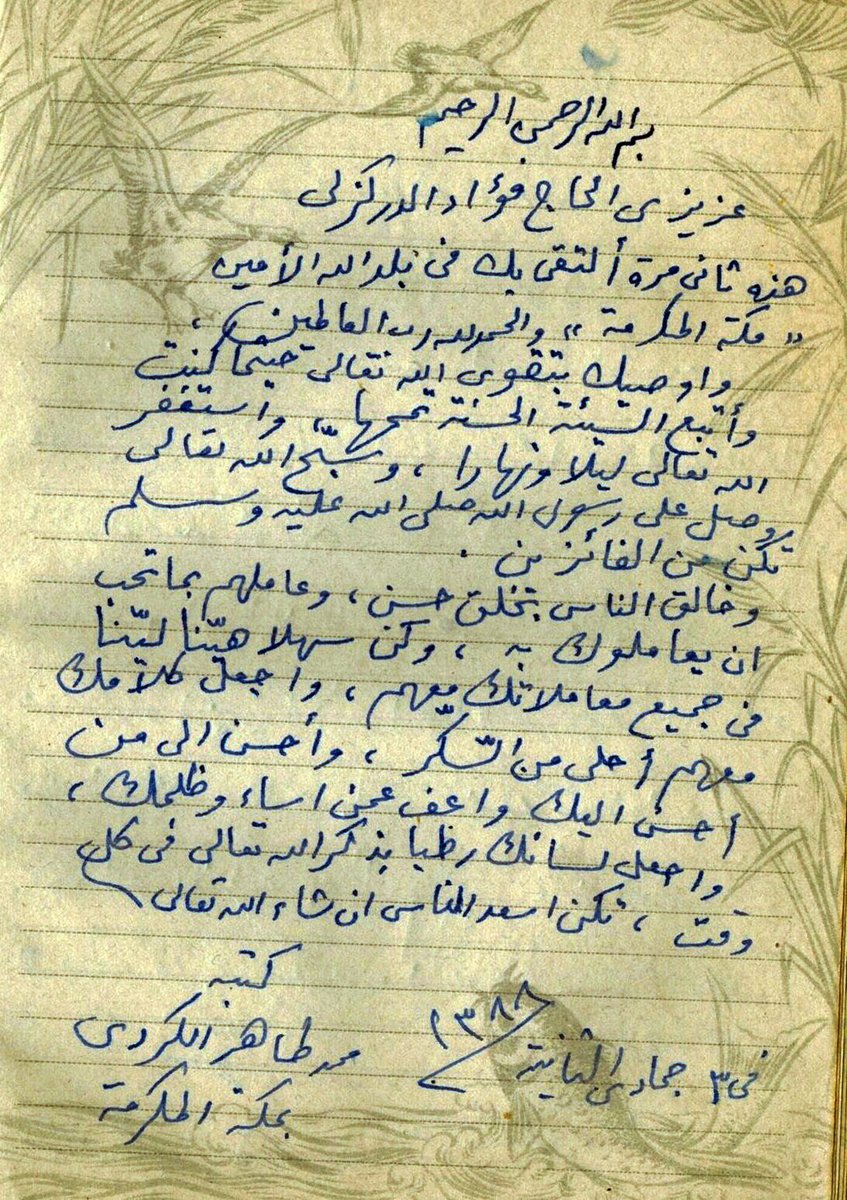 بسم الله الرحمن الرحيم
عزيزى الحاج فؤاد الدركزلى
هذه ثانى مرة ألتقى بك فى بلد الله الأمين
« مكة المكرمة » والحمد لله رب العالمين ،
واوصيك بتقوى الله تعالى حيثما كنت
وأتبع السّيئة الحسنة تمحها ، واستغفر
الله تعالى ليلا ونهارا ، وسبّح الله تعالى
وصل على رسول الله صلى الله عليه وسلم
تكن من الفائزين .
وخالق الناس بخلق حسن ، وعاملهم بما تحب
ان يعاملوك به ، وكن سهلا هيّنا ليّنا
فى جميع معاملاتك معهم ، واجعل كلامك
معهم أحلى من السّكر ، وأحسن الى من
أحسن اليك واعف عمن اساء وظلمك ،
واجعل لسانك رطبا بذكر الله تعالى فى كل
وقت ، تكن اسعد الناس ان شاء الله تعالى
كتبه
فى ٣ جمادى الثانية ١٣٨٨ محمد طاهر الكردى
بمكة المكرمة